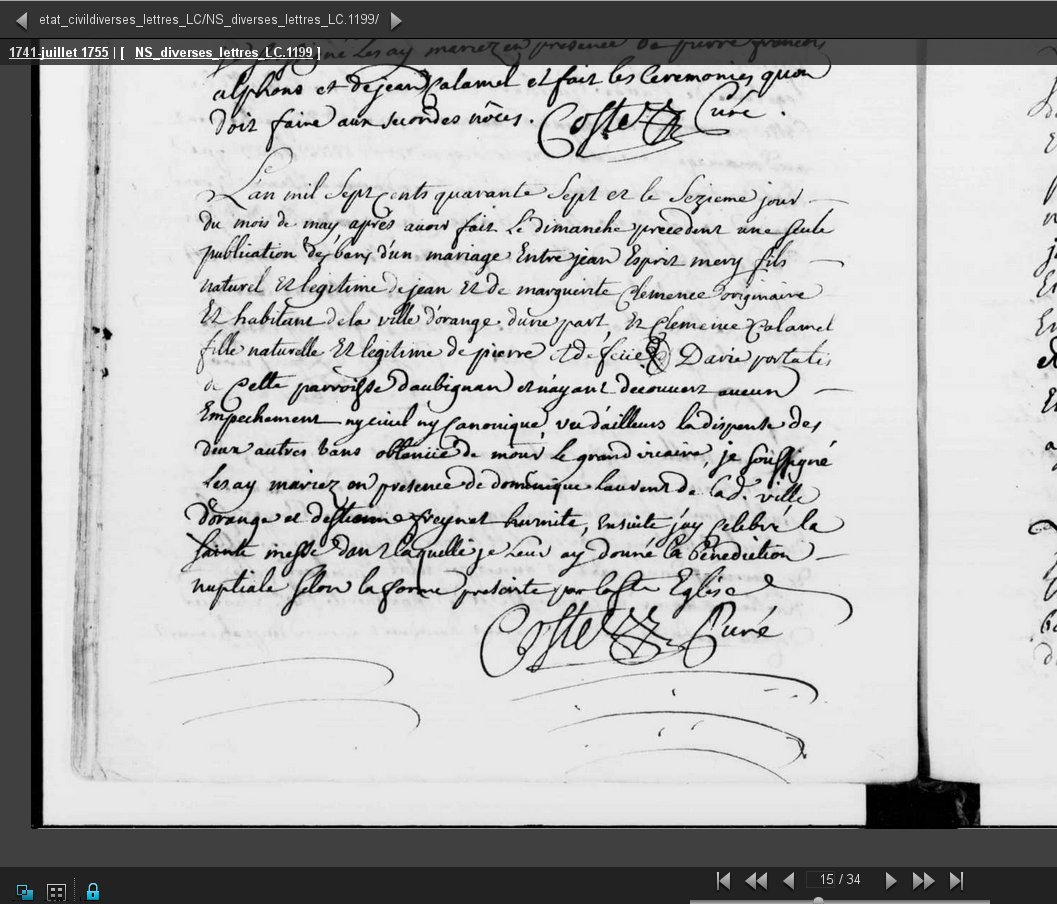 etat_civildiverses_lettres_LC/NS_diverses_lettres_LC.1199/
1741-juillet 1755 | [ NS_diverses_lettres_LC.1199 ]
les ay mariez en presence de pierre francois
alphons et de jean Calamel et fait les Ceremonies quon
doit faire aux secondes nôces. Coste Curé.
L'an mil Sept Cents quarante Sept et le Sezieme jour
du mois de may apres avoir fait le dimanche precedent une seule
publication des bans d'un mariage Entre jean Esprit mery fils
naturel Et legitime de jean Et de marguerite Clemence originaire
Et habitant de la ville d'orange d'une part, Et Clemence Calamel
fille naturelle Et legitime de pierre et de David
de Cette parroisse d'aubignan et n'ayant decouvert aucun
Empechement ny civil ny Canonique, vu d'ailleurs la dispense des
deux autres bans obtenue de monr le grand vicaire, je soussigné
les ay mariez en presence de dominique laurent de lad. ville
d'orange et d'estienne freynet hermite, ensuite j'ay celebré la
sainte messe dans laquelle je leur ay donné la benediction
nuptiale selon la forme prescrite par la Ste Eglise
Coste Curé
15 / 34